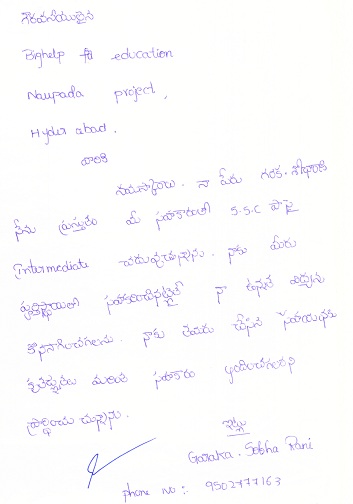 గౌరవనీయులైన
Bighelp for education
Naupada project,
Hyderabad.
వారికి
నమస్కారములు. నా పేరు గరక. శోభారాణి
నేను ప్రస్తుతం మీ సహకారంతో S.S.C పాసై
Intermediate చదువుచున్నాను. నాకు మీరు
పూర్తిస్థాయిలో సహకరించినట్లైతే నా ఉన్నత విద్యను
కొనసాగించగలను. నాకు మీరు చేసిన సహాయమునకు
కృతజ్ఞతలు మరియు సహకారం అందించగలరని
ప్రార్థించు చున్నాను.
ఇట్లు
Garaka. Sobha Rani
phone no :- 9502777163